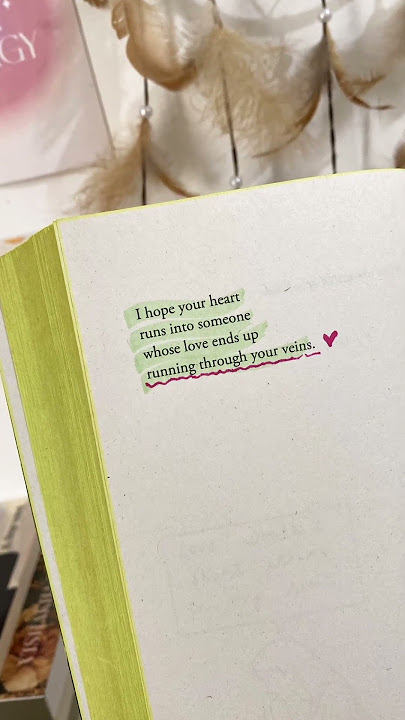 GY
I hope your heart
runs into someone
whose love ends up
running through your veins.